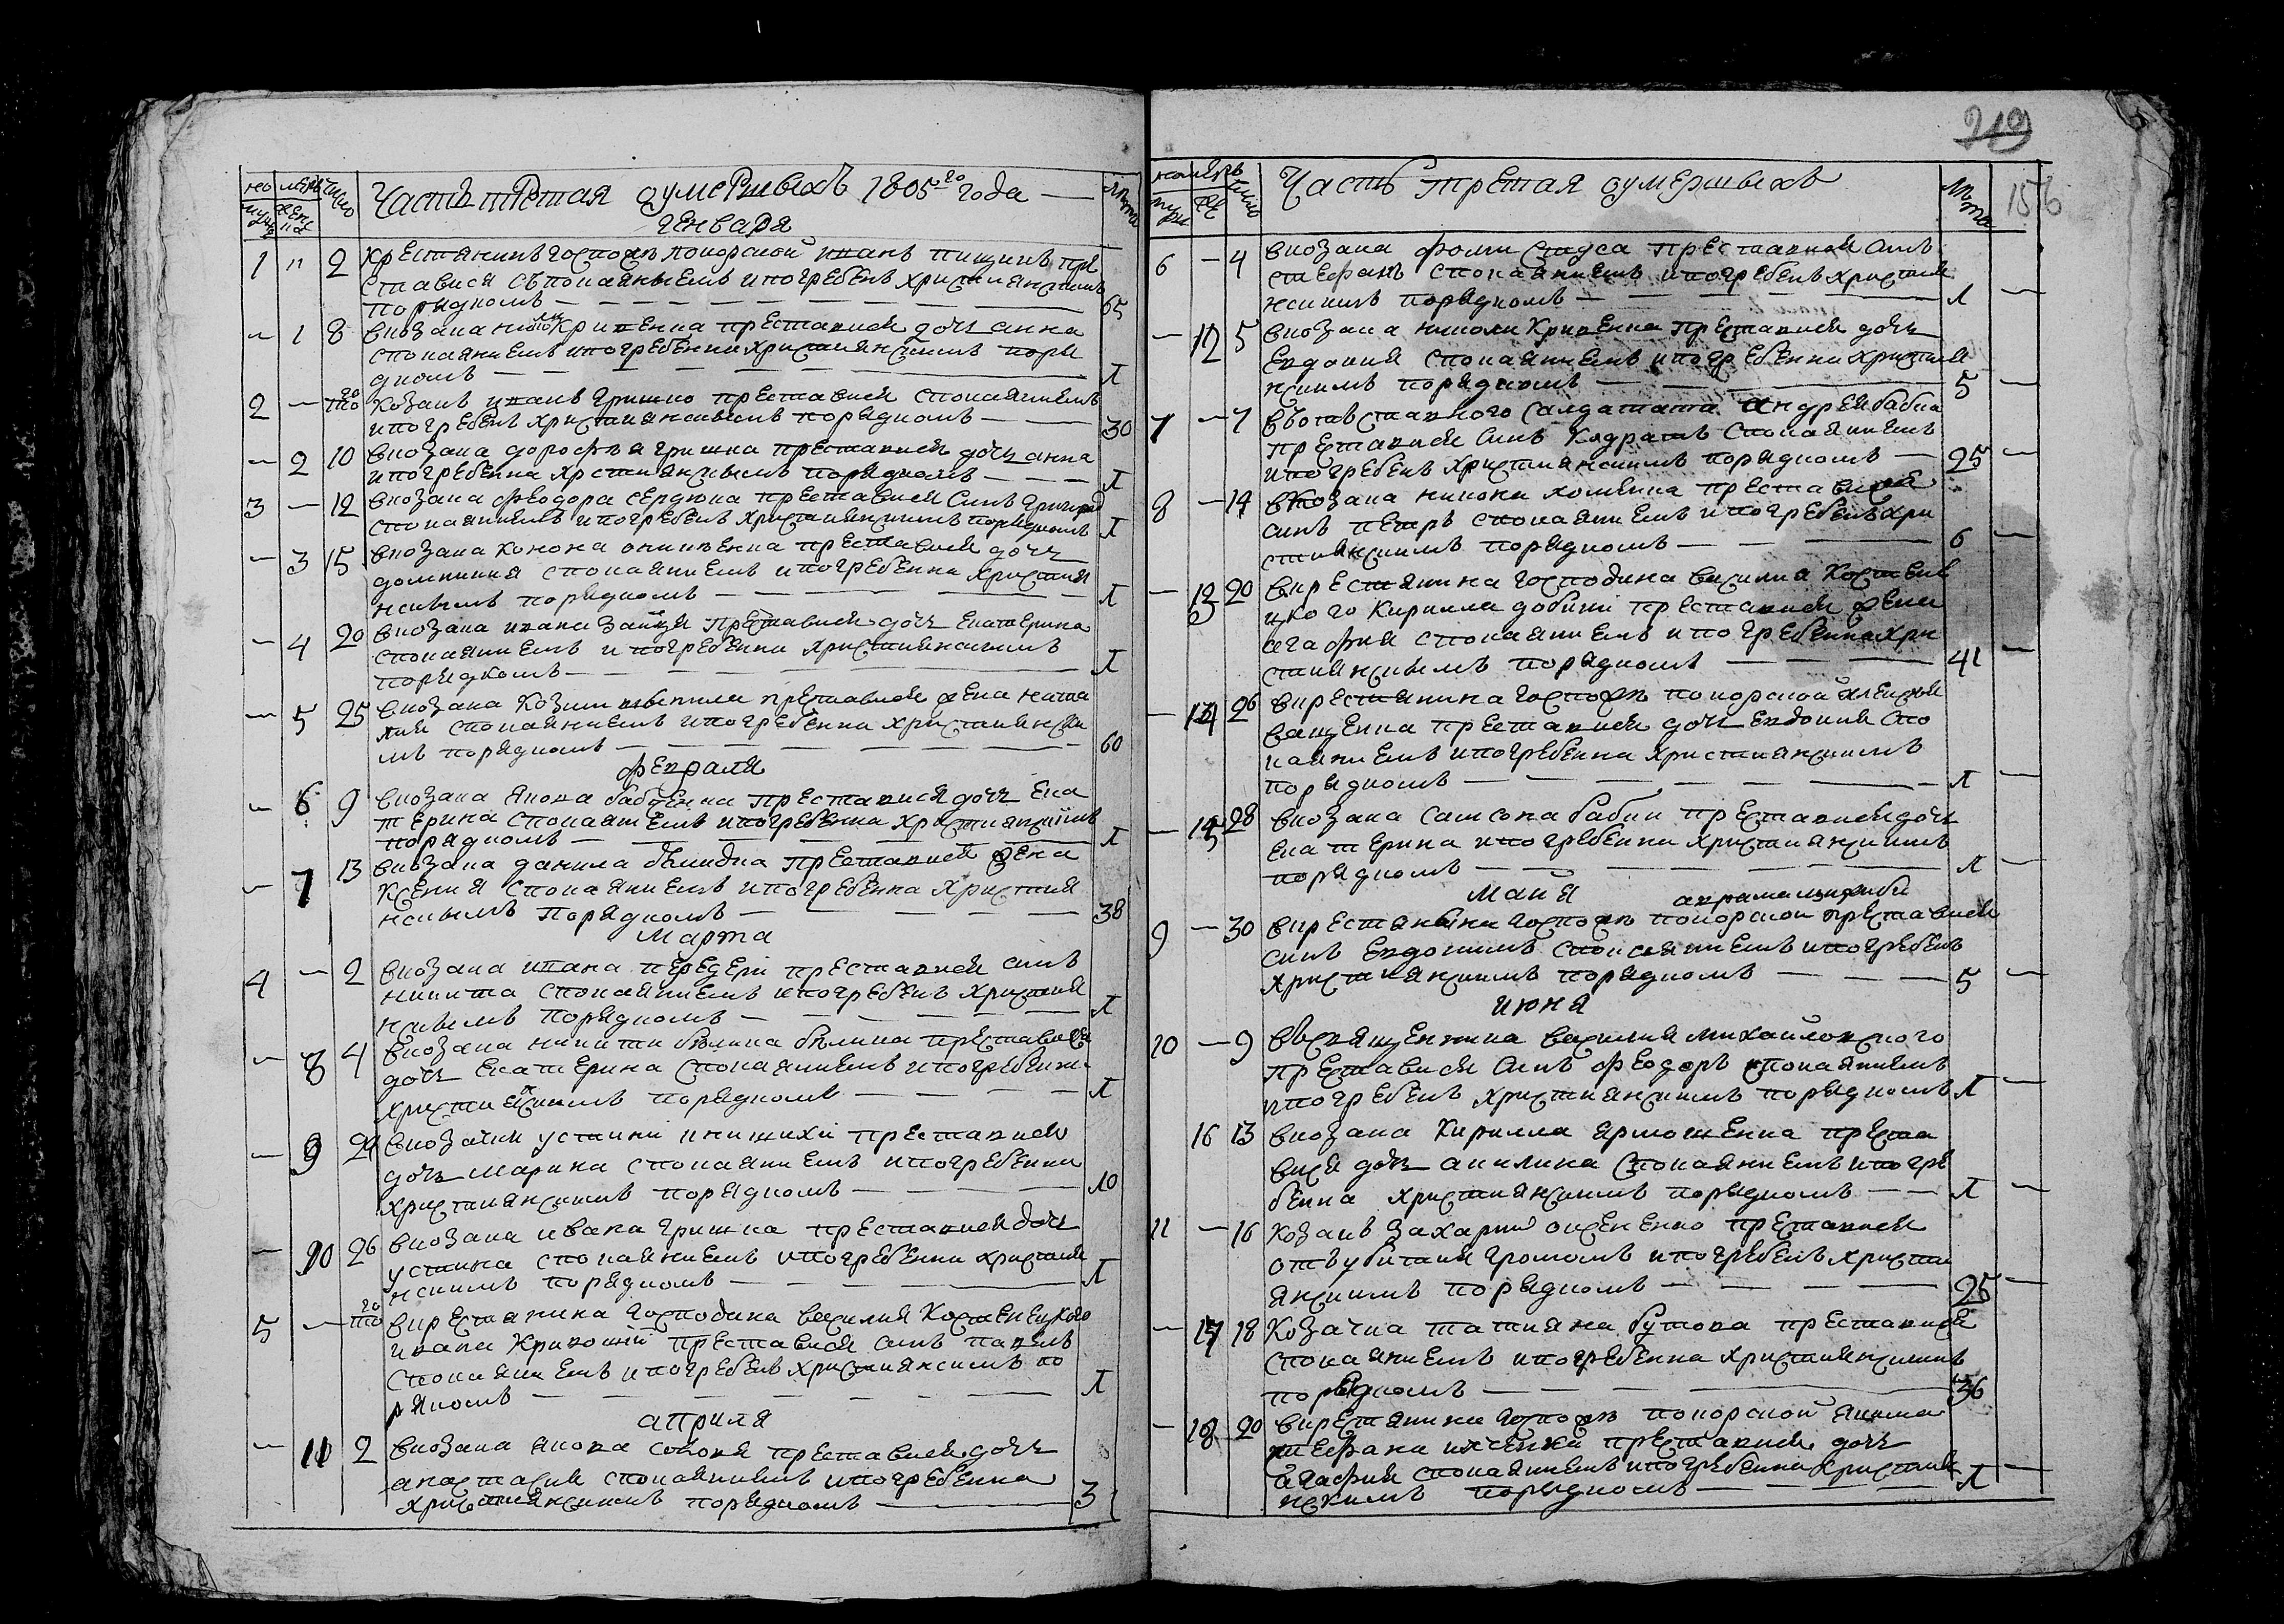 219
156
Часть третая оумершвыхъ 1805го года
генваря
1 " 2 крестянинъ госпожъ покорской иванъ пищикъ пре
ставися съ покаяныемъ и погребенъ християнскимъ
порядкомъ 65
1 8 вкозака николи кривенка преставися дочь анна
спокаяниемъ и погребенна християнскимъ поря
дкомъ Л
2 — козакъ иванъ гришко преставися спокаяниемъ
и погребенъ християнскимъ порядкомъ 30
— 2 10 вкозака дорофея гришка преставися дочь анна
и погребенна християнскимъ порядкомъ Л
3 — 12 вкозака феодора сердюка преставися синъ григорий
спокаяниемъ и погребенъ християнскимъ порядкомъ Л
— 3 15 вкозака конона преставися дочь
домникия спокаяниемъ и погребенна християн
нскимъ порядкомъ Л
— 4 20 вкозака ивана зайця преставися дочь екатерина
спокаяниемъ и погребенна християнскимъ
порядкомъ Л
— 5 25 вкозака козми преставися жена ната
лия спокаяниемъ и погребенна християнски
мъ порядкомъ 60
февраля
— 6 9 вкозака якова бабченка преставися дочь ека
терина спокаяниемъ и погребенна християнскимъ
порядкомъ Л
— 7 13 вкозака данила преставися жена
ксения спокаяниемъ и погребенна християн
нскимъ порядкомъ 38
марта
4 — 2 вкозака ивана передерия преставися синъ
никита спокаяниемъ и погребенъ християн
нскимъ порядкомъ Л
— 8 4 вкозака никити белика преставися
дочь екатерина спокаяниемъ и погребенна
християнскимъ порядкомъ Л
— 9 24 вкозачки устини преставися
дочь марина спокаяниемъ и погребенна
християнскимъ порядкомъ 10
— 10 26 вкозака ивана гришка преставися дочь
устина спокаяниемъ и погребенна християн
нскимъ порядкомъ Л
5 — вкрестянина господина василия костенецкого
ивана кривоший преставися синъ павелъ
спокаяниемъ и погребенъ християнскимъ по
рядкомъ Л
априля
— 11 2 вкозака якова преставися дочь
анастасия спокаяниемъ и погребенна
християнскимъ порядкомъ 3
Часть третая оумершвыхъ
6 — 4 вкозака фоми стуса преставися синъ
стефанъ спокаяниемъ и погребенъ християн
нскимъ порядкомъ Л
— 12 5 вкозака николи кривенка преставися дочь
евдокия спокаяниемъ и погребенна християн
нскимъ порядкомъ 5
7 — 7 въотъставного салдатата андрея бабки
преставися синъ кодратъ спокаяниемъ
и погребенъ християнскимъ порядкомъ 25
8 — 14 вкозака никони хоменка преставися
синъ петръ спокаяниемъ и погребенъ хри
стиянскимъ порядкомъ 6
— 13 20 вкрестянина господина василия костене
цкого кирилла преставися жена
агафия спокаяниемъ и погребенна хри
стиянскимъ порядкомъ 41
— 14 26 вкрестянина госпожъ покорской алексея
ващенка преставися дочь евдокия спо
каяниемъ и погребенна християнскимъ
порядкомъ Л
— 15 28 вкозака самсона бабки преставися дочь
екатерина и погребенна християнскимъ
порядкомъ Л
майя
9 — 30 вкрестянина госпожъ покорской преставися
синъ евдокимъ спокаяниемъ и погребенъ
християнскимъ порядкомъ 5
июня
10 — 9 всвященника василия михайловского
преставися синъ феодоръ спокаяниемъ
и погребенъ християнскимъ порядкомъ Л
16 13 вкозака кирилла ярмошенка преста
вися дочь акилина спокаяниемъ и погре
бенна християнскимъ порядкомъ Л
11 — 16 козакъ захарий преставися
отъ убитаия громомъ и погребенъ христи
янскимъ порядкомъ 25
— 17 18 козачка татияна бутова преставися
спокаяниемъ и погребенна християнскимъ
порядкомъ 36
— 18 20 вкрестянина госпожъ покорской
стефана преставися дочь
агафия спокаяниемъ и погребенна християн
нскимъ порядкомъ Л